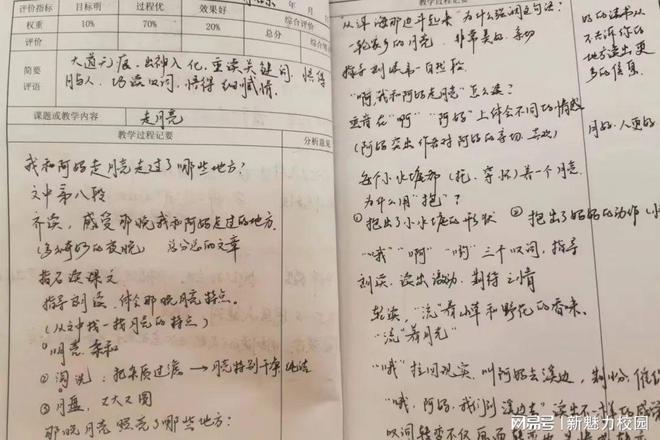 评价指标 目标明 过程优 效果好 年 月
权重 10% 70% 20% 综合评价
评价 总分
简要 大道无痕,出神入化,重读关键词,悟得
评语 月与人,巧读叹词,悟得细赋情.
课题或教学内容 走月亮
教学过程记要 分析意见
我和阿妈走月亮走过了哪些地方?
文中第八段
齐读,感受那晚我和阿妈走过的地方.
(多么奇妙的夜晚) 总分总的文章
指名读课文
指导朗读.体会那晚月亮特点.
(从文中找一找月亮的特点)
①明亮 柔和
② 淘洗:把杂质过滤→月亮特别干净 纯洁
③月盘,又大又圆
那晚月亮照亮了哪些地方:
教学过程记要
从洱海那边升起来"为什么强调这句话?
一轮故乡的月亮,非常美好、亲切
指导朗读第一自然段
"啊,我和阿妈走月亮"怎么读?
重音在"啊""阿妈"上体会不同的情感
(阿妈突出作者对阿妈的亲切、喜欢)
每个小水塘都(抱、穿、怀)着一个月亮.
为什么用"抱"?
①抱出了小水塘的形状 ②抱出了妈妈的动作
"哦""啊""哟"三个叹词,指导
朗读.读出激动、期待之情
轻读."流"着山草和野花的香味.
"流"着月光"
"哦"拉回现实.叫阿妈去溪边,
"哦.阿妈,我们到溪边去"读出不一样的感觉
好的读书从
不告诉你的
地方读出更
多的信息.
月好.人更好
搜狐号@新魅力校园